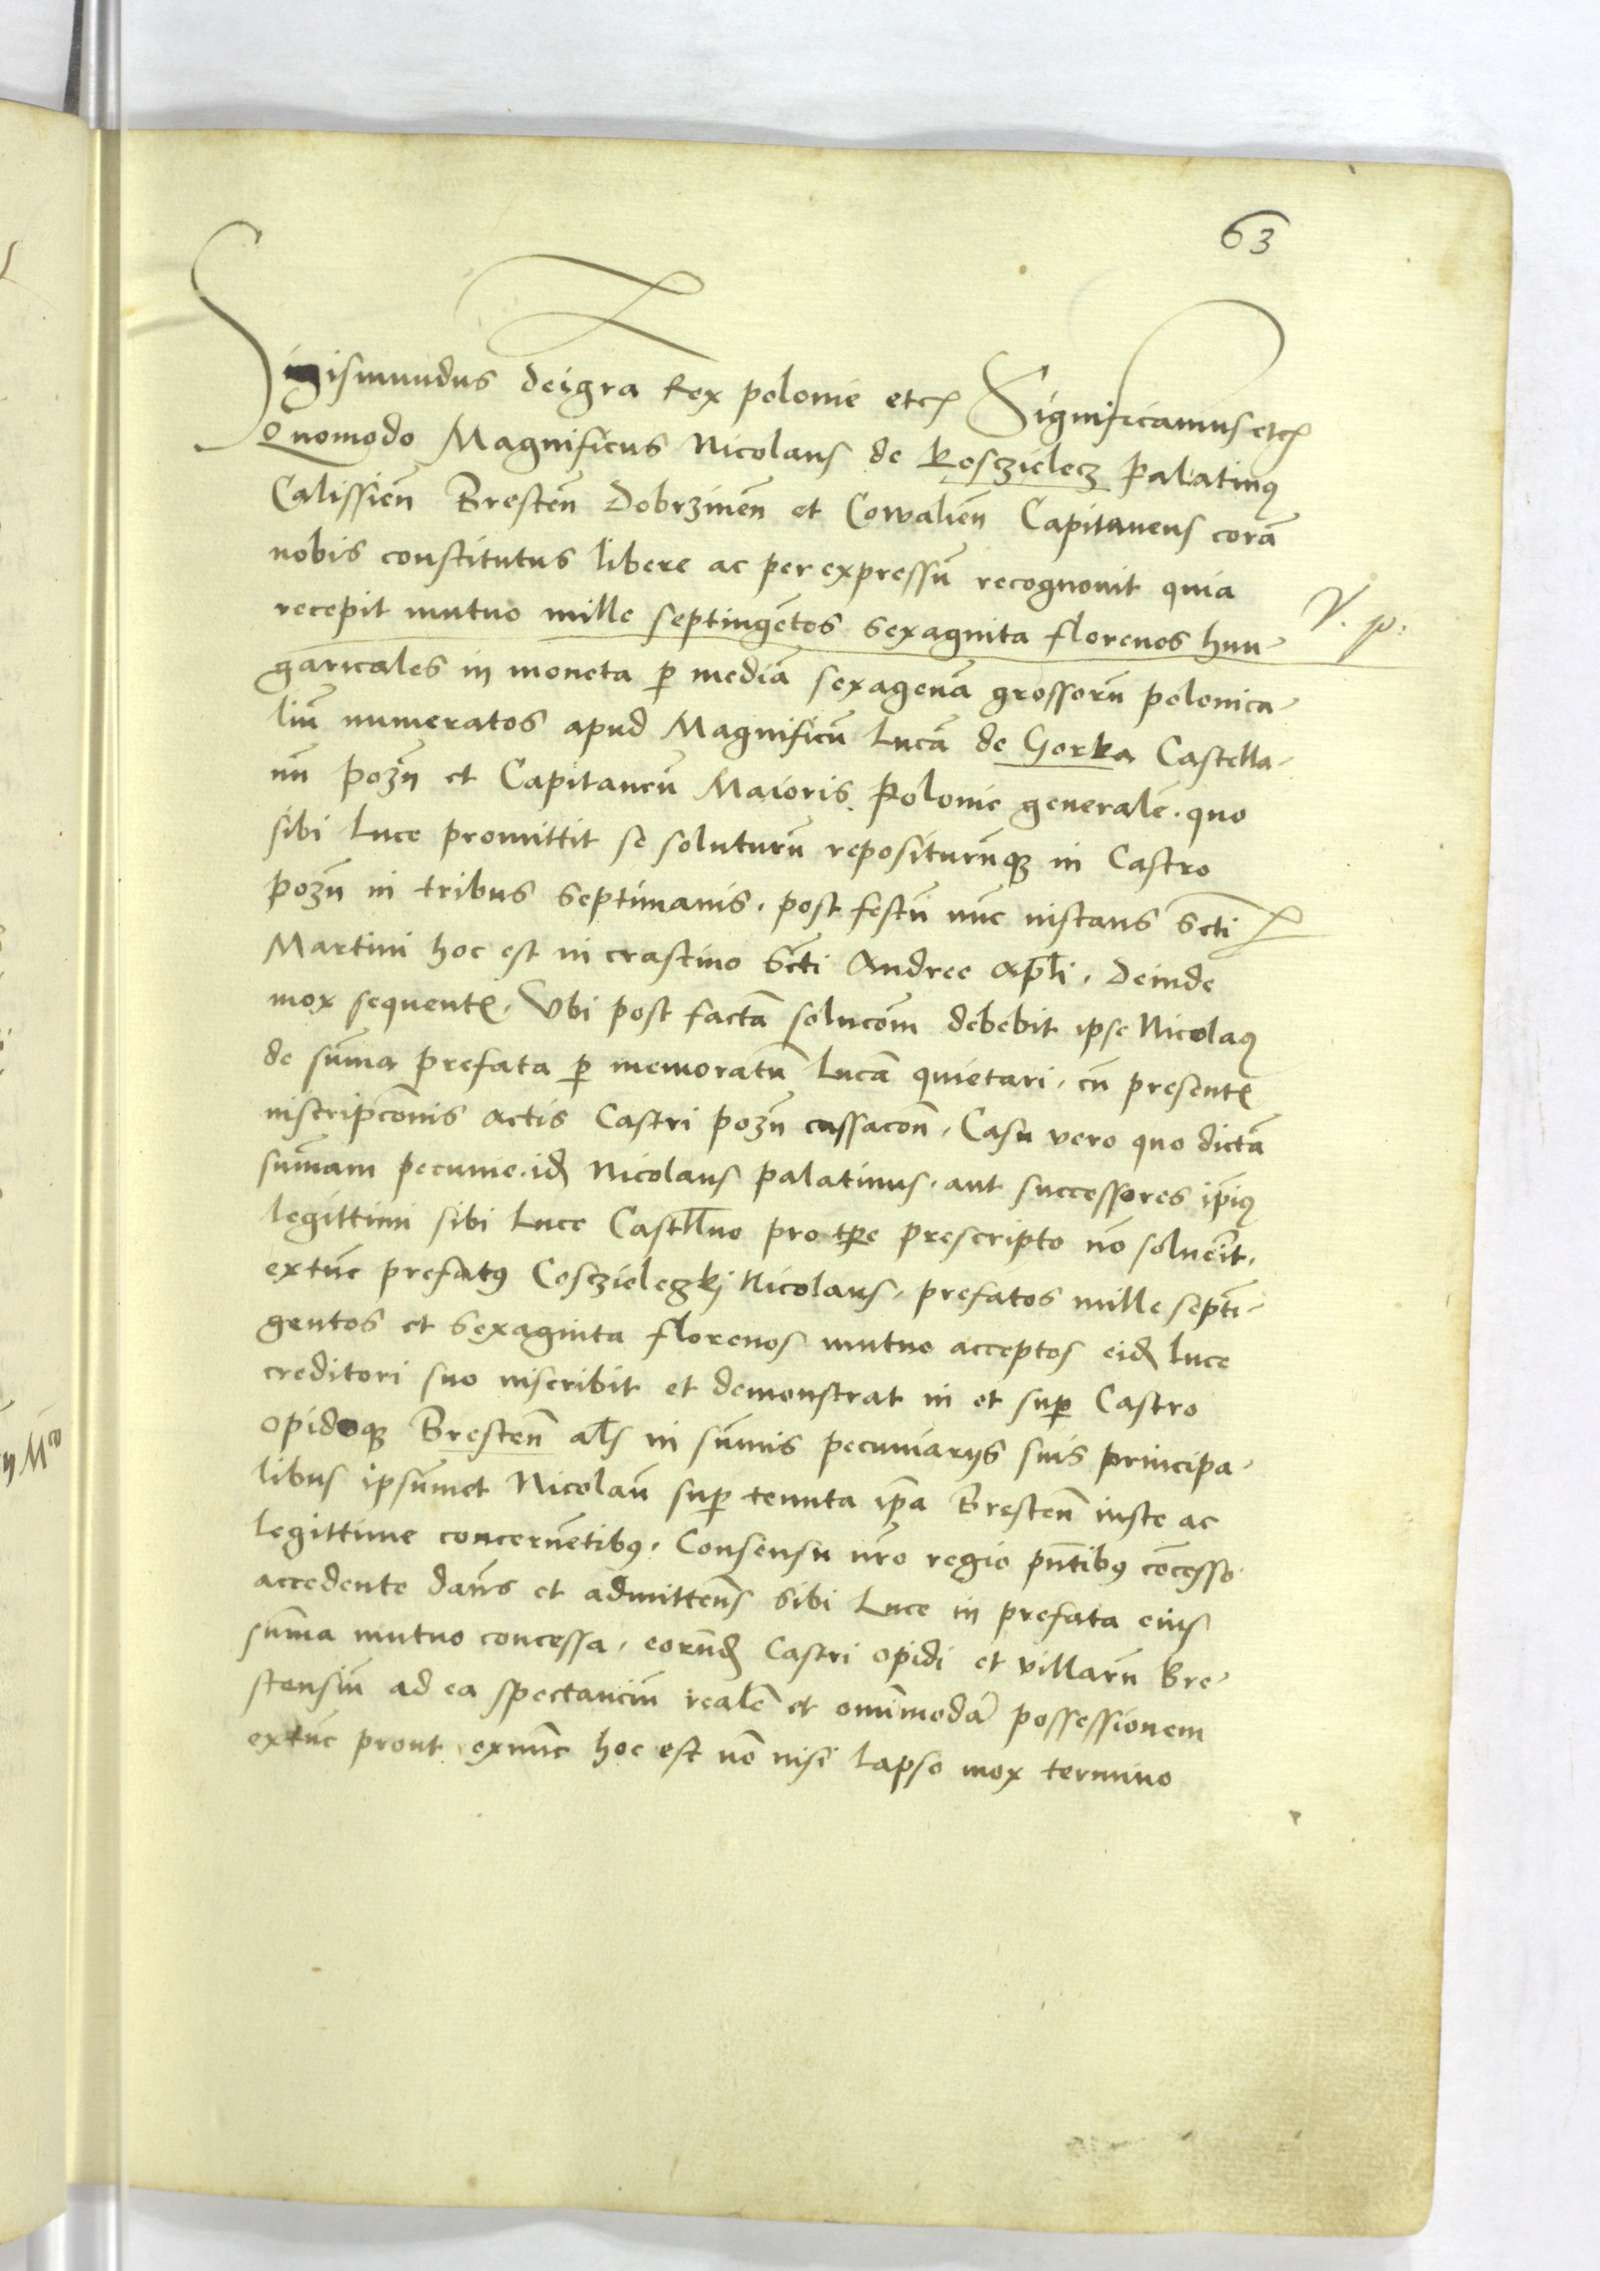 63
Sigismundus deigra Rex polonie etc Significamus etc
Quomodo Magnificus Nicolaus de Kosczielecz palatinꝯ
Calissien̄ Bresten̄ Dobrzinen̄ et Cowalien̄ Capitaneus corā
nobis constitutus libere ac per expressū recognouit quia
recepit mutuo mille septingētos sexaginta florenos hun-
garicales in moneta ꝑ mediā sexagenā grossorū polonica-
liū numeratos apud Magnificū Lucā de Gorka Castella-
nū pozn̄ et Capitaneū Maioris Polonie generalē. quo
sibi Luce promittit se soluturū repositurūqꝫ in Castro
pozn̄ in tribus septimanis. post festū nūc instans Scti
Martini hoc est in crastino Scti Andree Apl̄i. Deinde
mox sequentꝭ. Vbi post factā solucōm debebit ipse Nicolaꝯ
de sūma prefata ꝑ memoratū Lucā quietari. cū presentꝭ
inscripcōnis actis Castri pozn̄ cassacōn. Casu vero quo dictā
sum̄am pecunie. idꝫ Nicolaus palatinus. aut successores ip̄iꝯ
legittimi sibi Luce Castll̄no pro tp̄e prescripto nō soluerīt.
extūc prefatꝯ Cosczieleczkj Nicolaus. prefatos mille septī-
gentos et sexaginta florenos mutuo acceptos eidꝫ luce
creditori suo inscribit et demonstrat in et suꝑ Castro
opidoqꝫ Bresten̄ al̄s in sūmis pecuniarijs suis principa-
libus ipsūmet Nicolaū suꝑ tenuta ip̄a Bresten̄ iuste ac
legittime concernētibꝯ. Consensu nr̄o regio pn̄tibꝯ cōcesso
accedente dan̄s et admitten̄s sibi Luce in prefata eius
sūma mutuo concessa. eorūdꝫ Castri opidi et villarū Bre-
stensiū ad ea spectanciū realē et omīmodā possessionem
extūc prout exnūc hoc est nō nisi lapso mox termino
V. p: